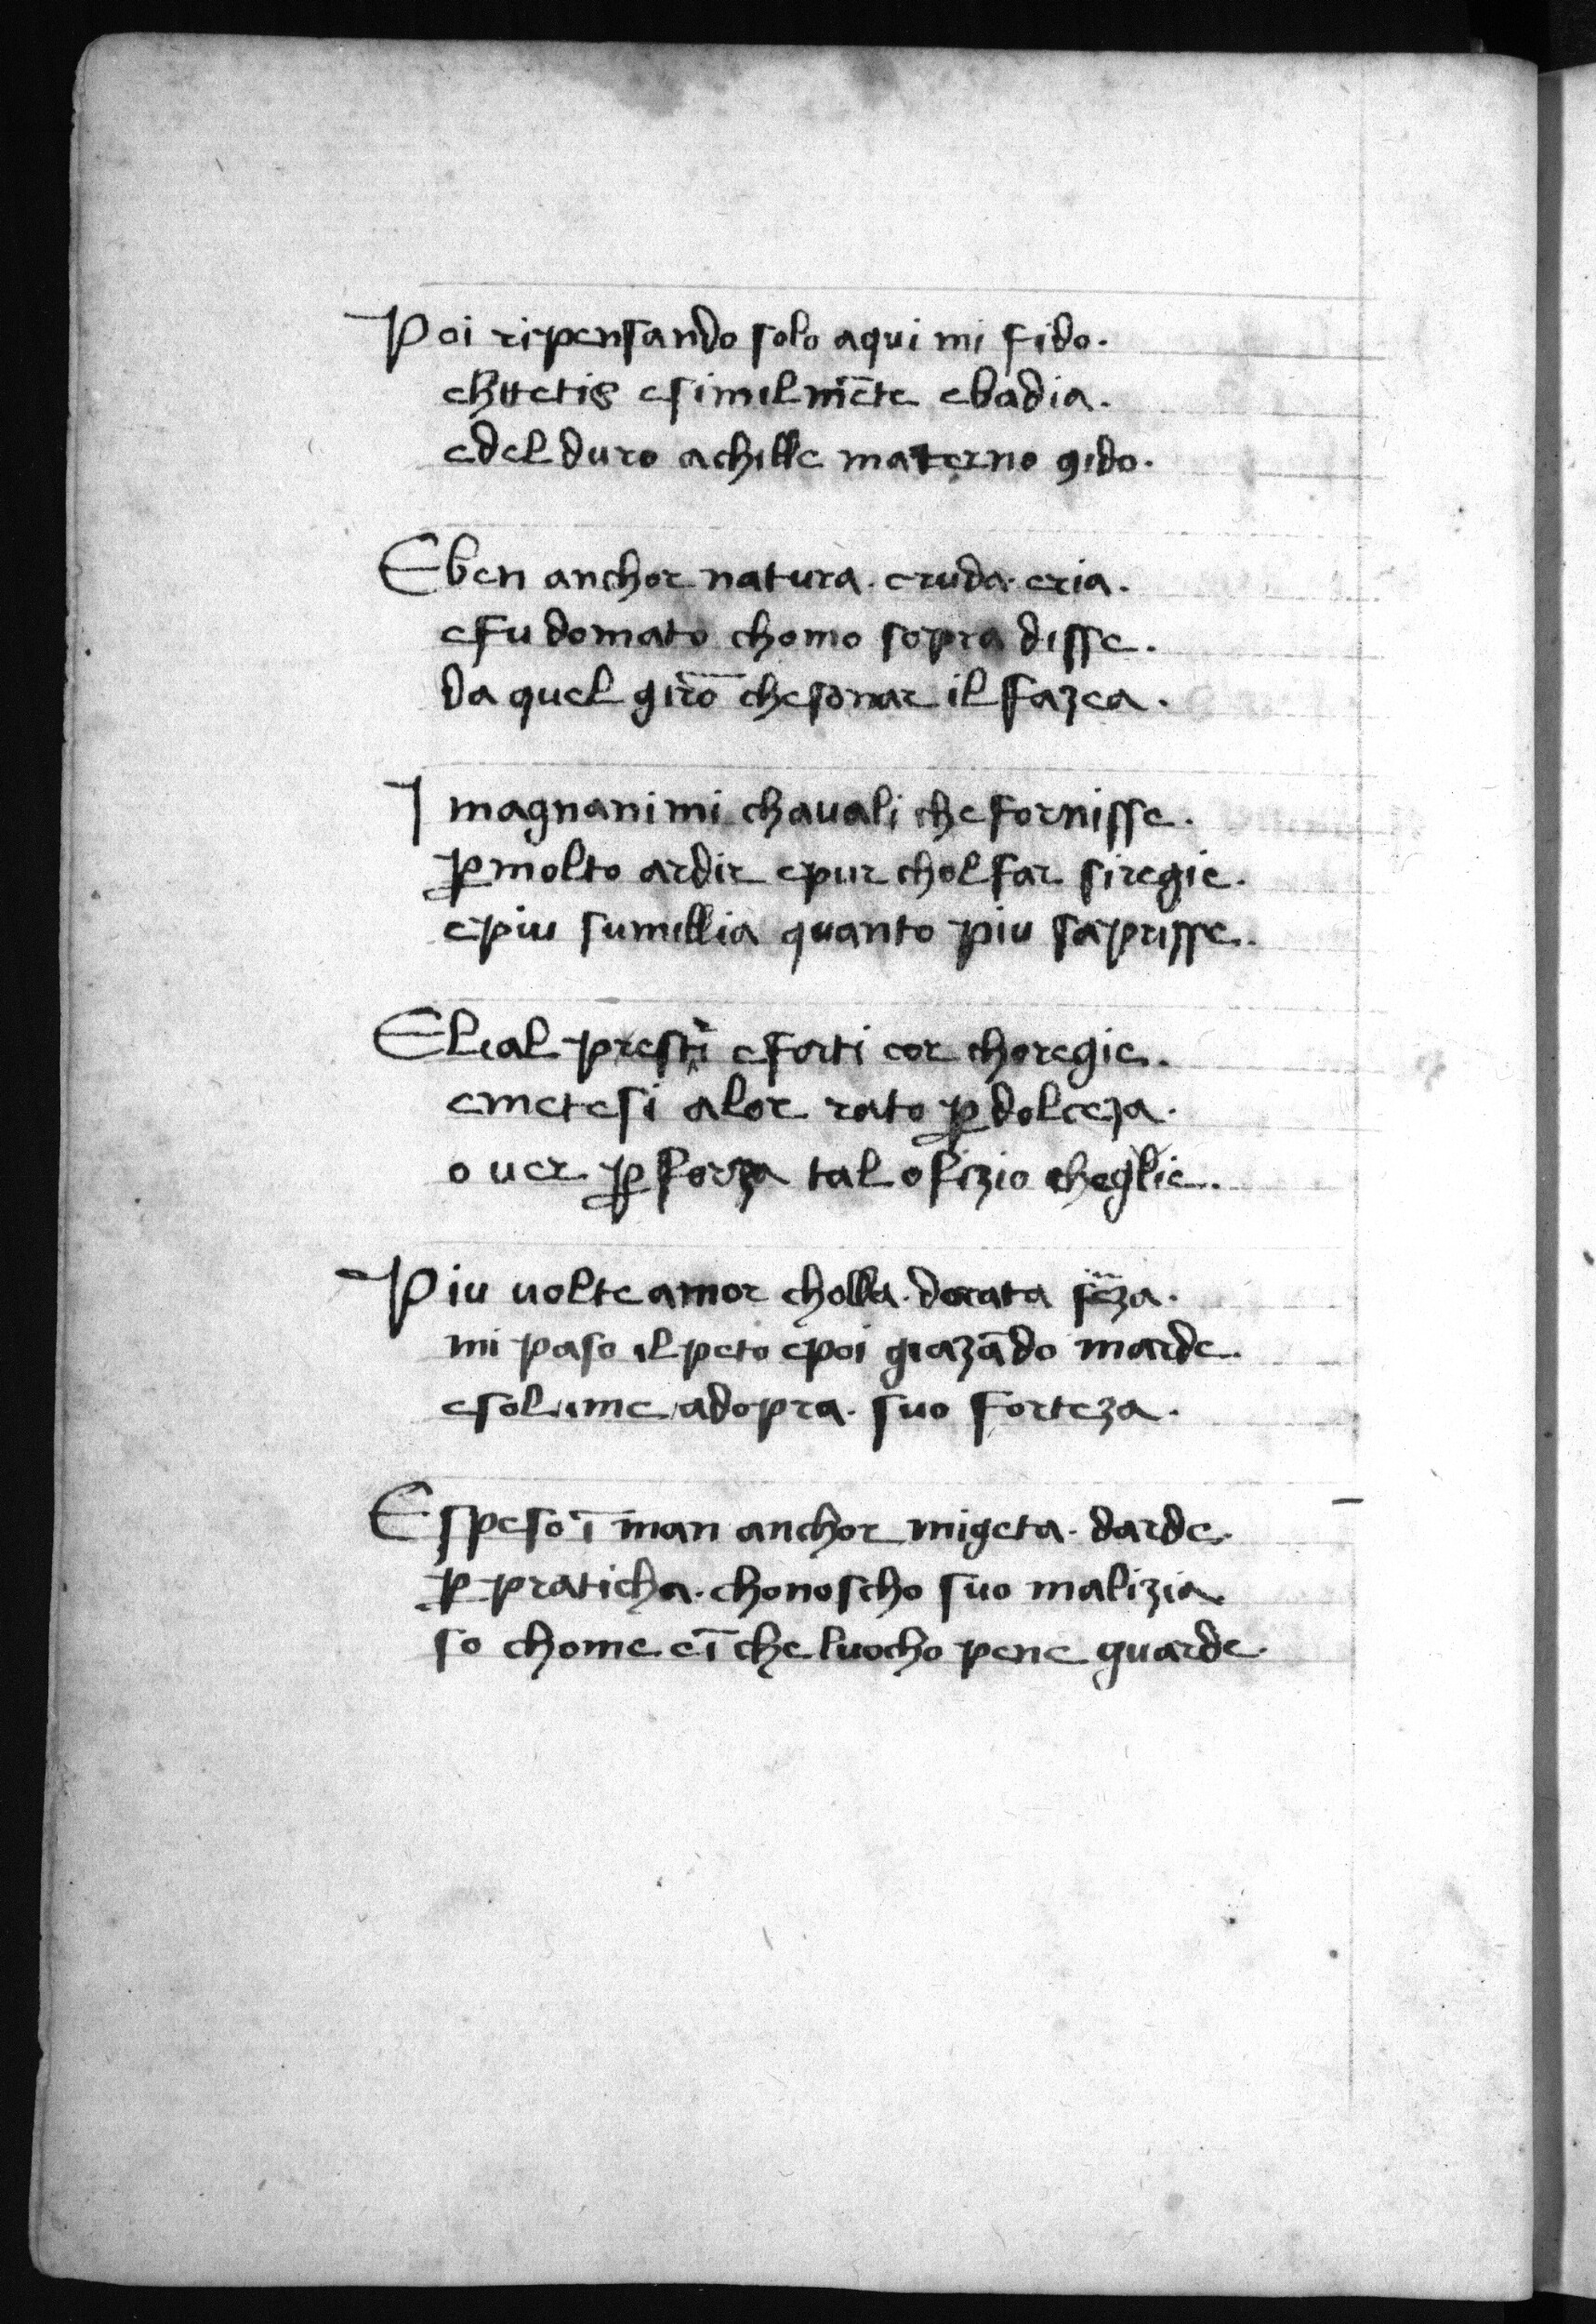 Poi ripensando solo aqui mi fido.
esimilmēte ebadia.
edel duro achille materno gido.
Eben anchor natura. cruda. eria.
efu domato chomo sopra disse.
da quel che sonar il fazea.
I magnanimi chauali che fornisse.
ꝑ molto ardir epur chol far siregie.
epiu sumillia quanto piu saprisse.
Elial presti eforti cor choregie.
emetesi alor rato ꝑ dolceza.
o uer ꝑ forza tal ofizio cheglie.
Piu uolte amor cholla. dorata
mi paso il peto epoi giazādo marde.
esol ime adopra. suo forteza.
Espeso ī man anchor migeta. darde.
ꝑ praticha. chonoscho suo malizia.
so chome eī che luocho pene guarde.